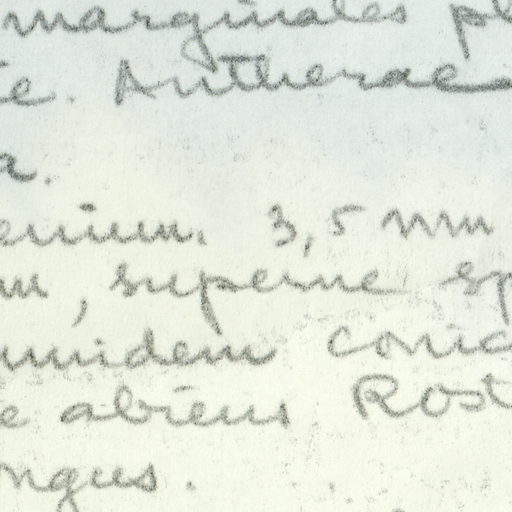 marginales pl
e. Antherae
a.
enium. 3,5 mm
m, superne sp
umidem conic
e abiens Rost
ngus.